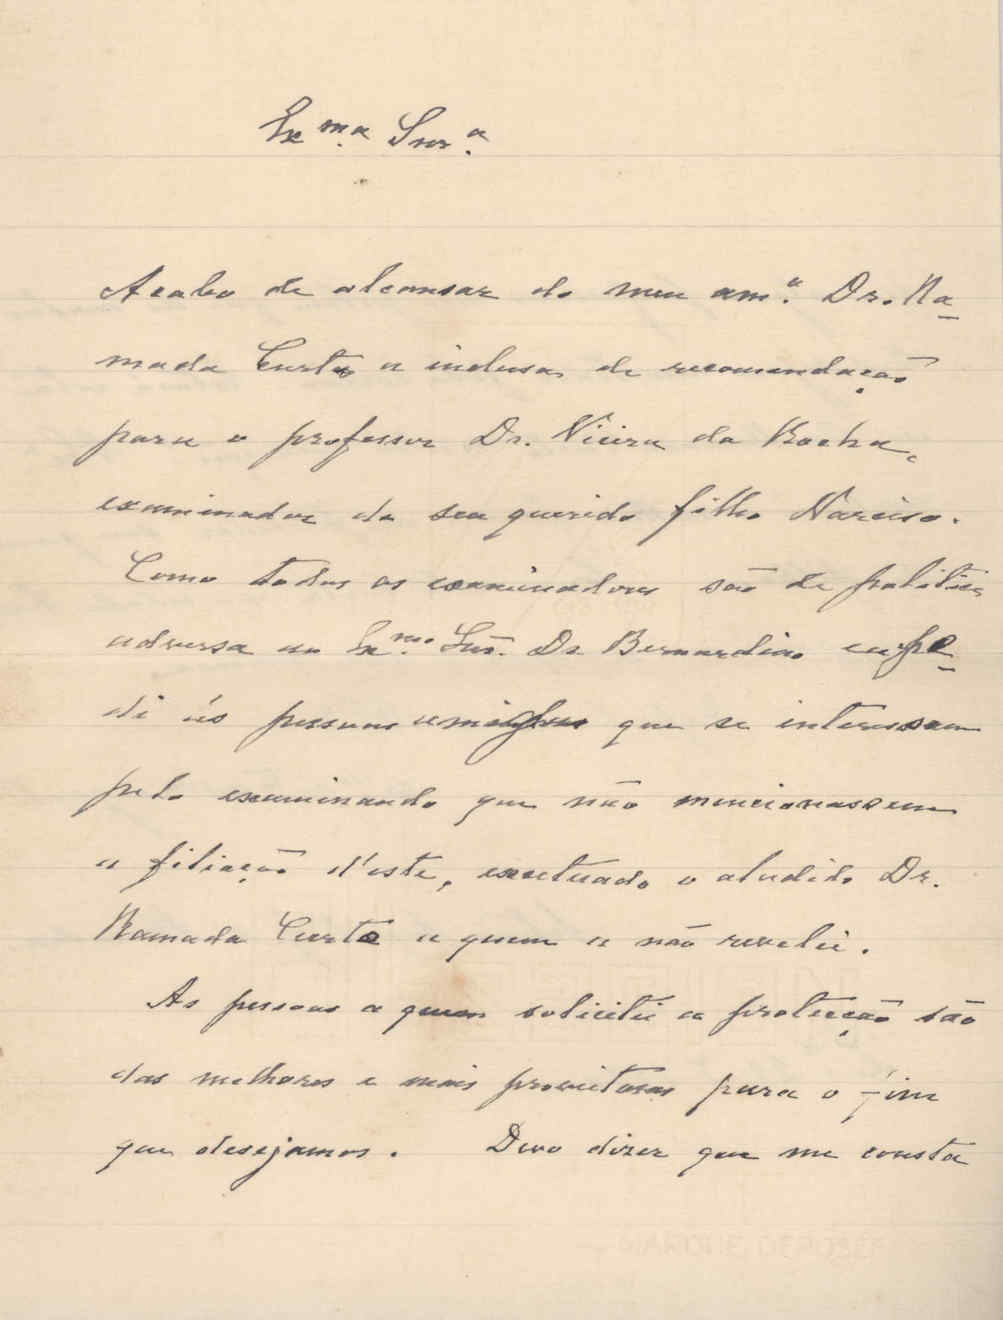 Ex.ma Snr.a
Acabo de alcansar do meu am.º Dr. Ra-
mada Curto a inclusa, de recomendação
para o professor Dr. Vieira da Rocha,
examinador do seu querido filho Narciso.
Como todos os examinadores são de politica
adversa ao Ex.mo Snr. Dr. Bernardino eu pe-
di ás pessoas amigas que se interessam
pelo examinando que não mencionassem
a filiação d'este, exsetuado o aludido Dr.
Ramada Curto a quem a não revelei.
As pessoas a quem solicitei a proteção são
das melhores e mais proveitosas para o fim
que desejamos. Devo dizer que me consta